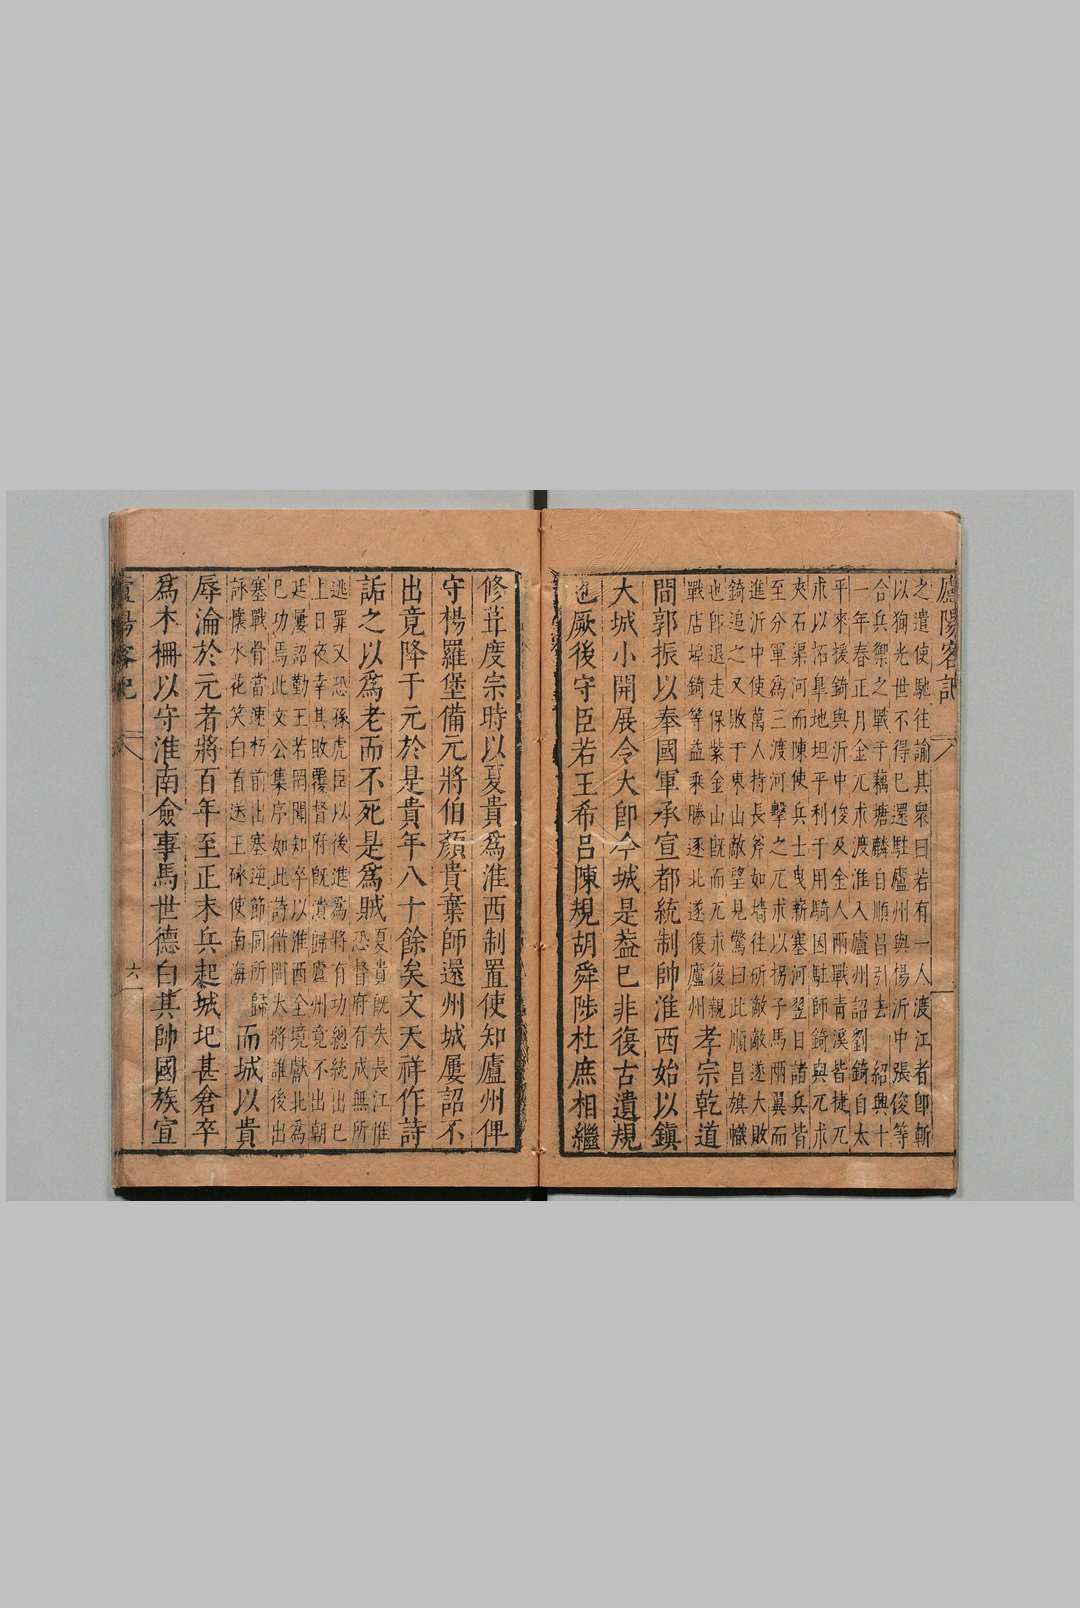 廬陽客記
之遣使馳往諭其衆曰若有一人渡江者卽斬
以狥光世不得已還駐廬州與楊沂中張俊等
合兵禦之戰于藕塘麟自順昌引去 紹興十
一年春正月金兀朮渡淮入廬州詔劉錡自太
平來援錡與沂中俊及金人兩戰青溪皆捷兀
朮以柘皐地坦平利于用騎因駐師錡與兀朮
夾石渠河而陳使兵士曳薪塞河翌日諸兵皆
至分軍爲三渡河擊之兀朮以拐子馬兩翼而
進沂中使萬人持長斧如墻往斫敵敵遂大敗
錡追之又敗于東山敵望見驚曰此順昌旗幟
也卽退走保紫金山旣而兀朮復親
戰店埠錡等益乘勝逐北遂復廬州
孝宗乾道
間郭振以奉國軍承宣都統制帥淮西始以鎮
大城小開展令大卽今城是葢已非復古遺規
也厥後守臣若王希呂陳規胡舜陟杜庶相繼
修葺度宗時以夏貴爲淮西制置使知廬州俾
守楊羅堡備元將伯顏貴棄師還州城屢詔不
出竟降于元於是貴年八十餘矣文天祥作詩
詬之以爲老而不死是爲賊
夏貴旣失長江惟
恐督府有成無所
逃罪又恐孫虎臣以後進爲將有功總統出已
上日夜幸其敗覆督府旣潰歸廬州竟不出朝
廷屢詔勤王若罔聞知卒以淮西全境獻北爲
已功焉此文公集序如此詩借問大將誰後出
塞戰骨當速朽前出塞逆節同所歸
詠懷水花笑白首送王砯使南海
而城以貴
辱淪於元者將百年至正末兵起城圯甚倉卒
爲木柵以守淮南僉事馬世德白其帥國族宣
廬陽客記
六